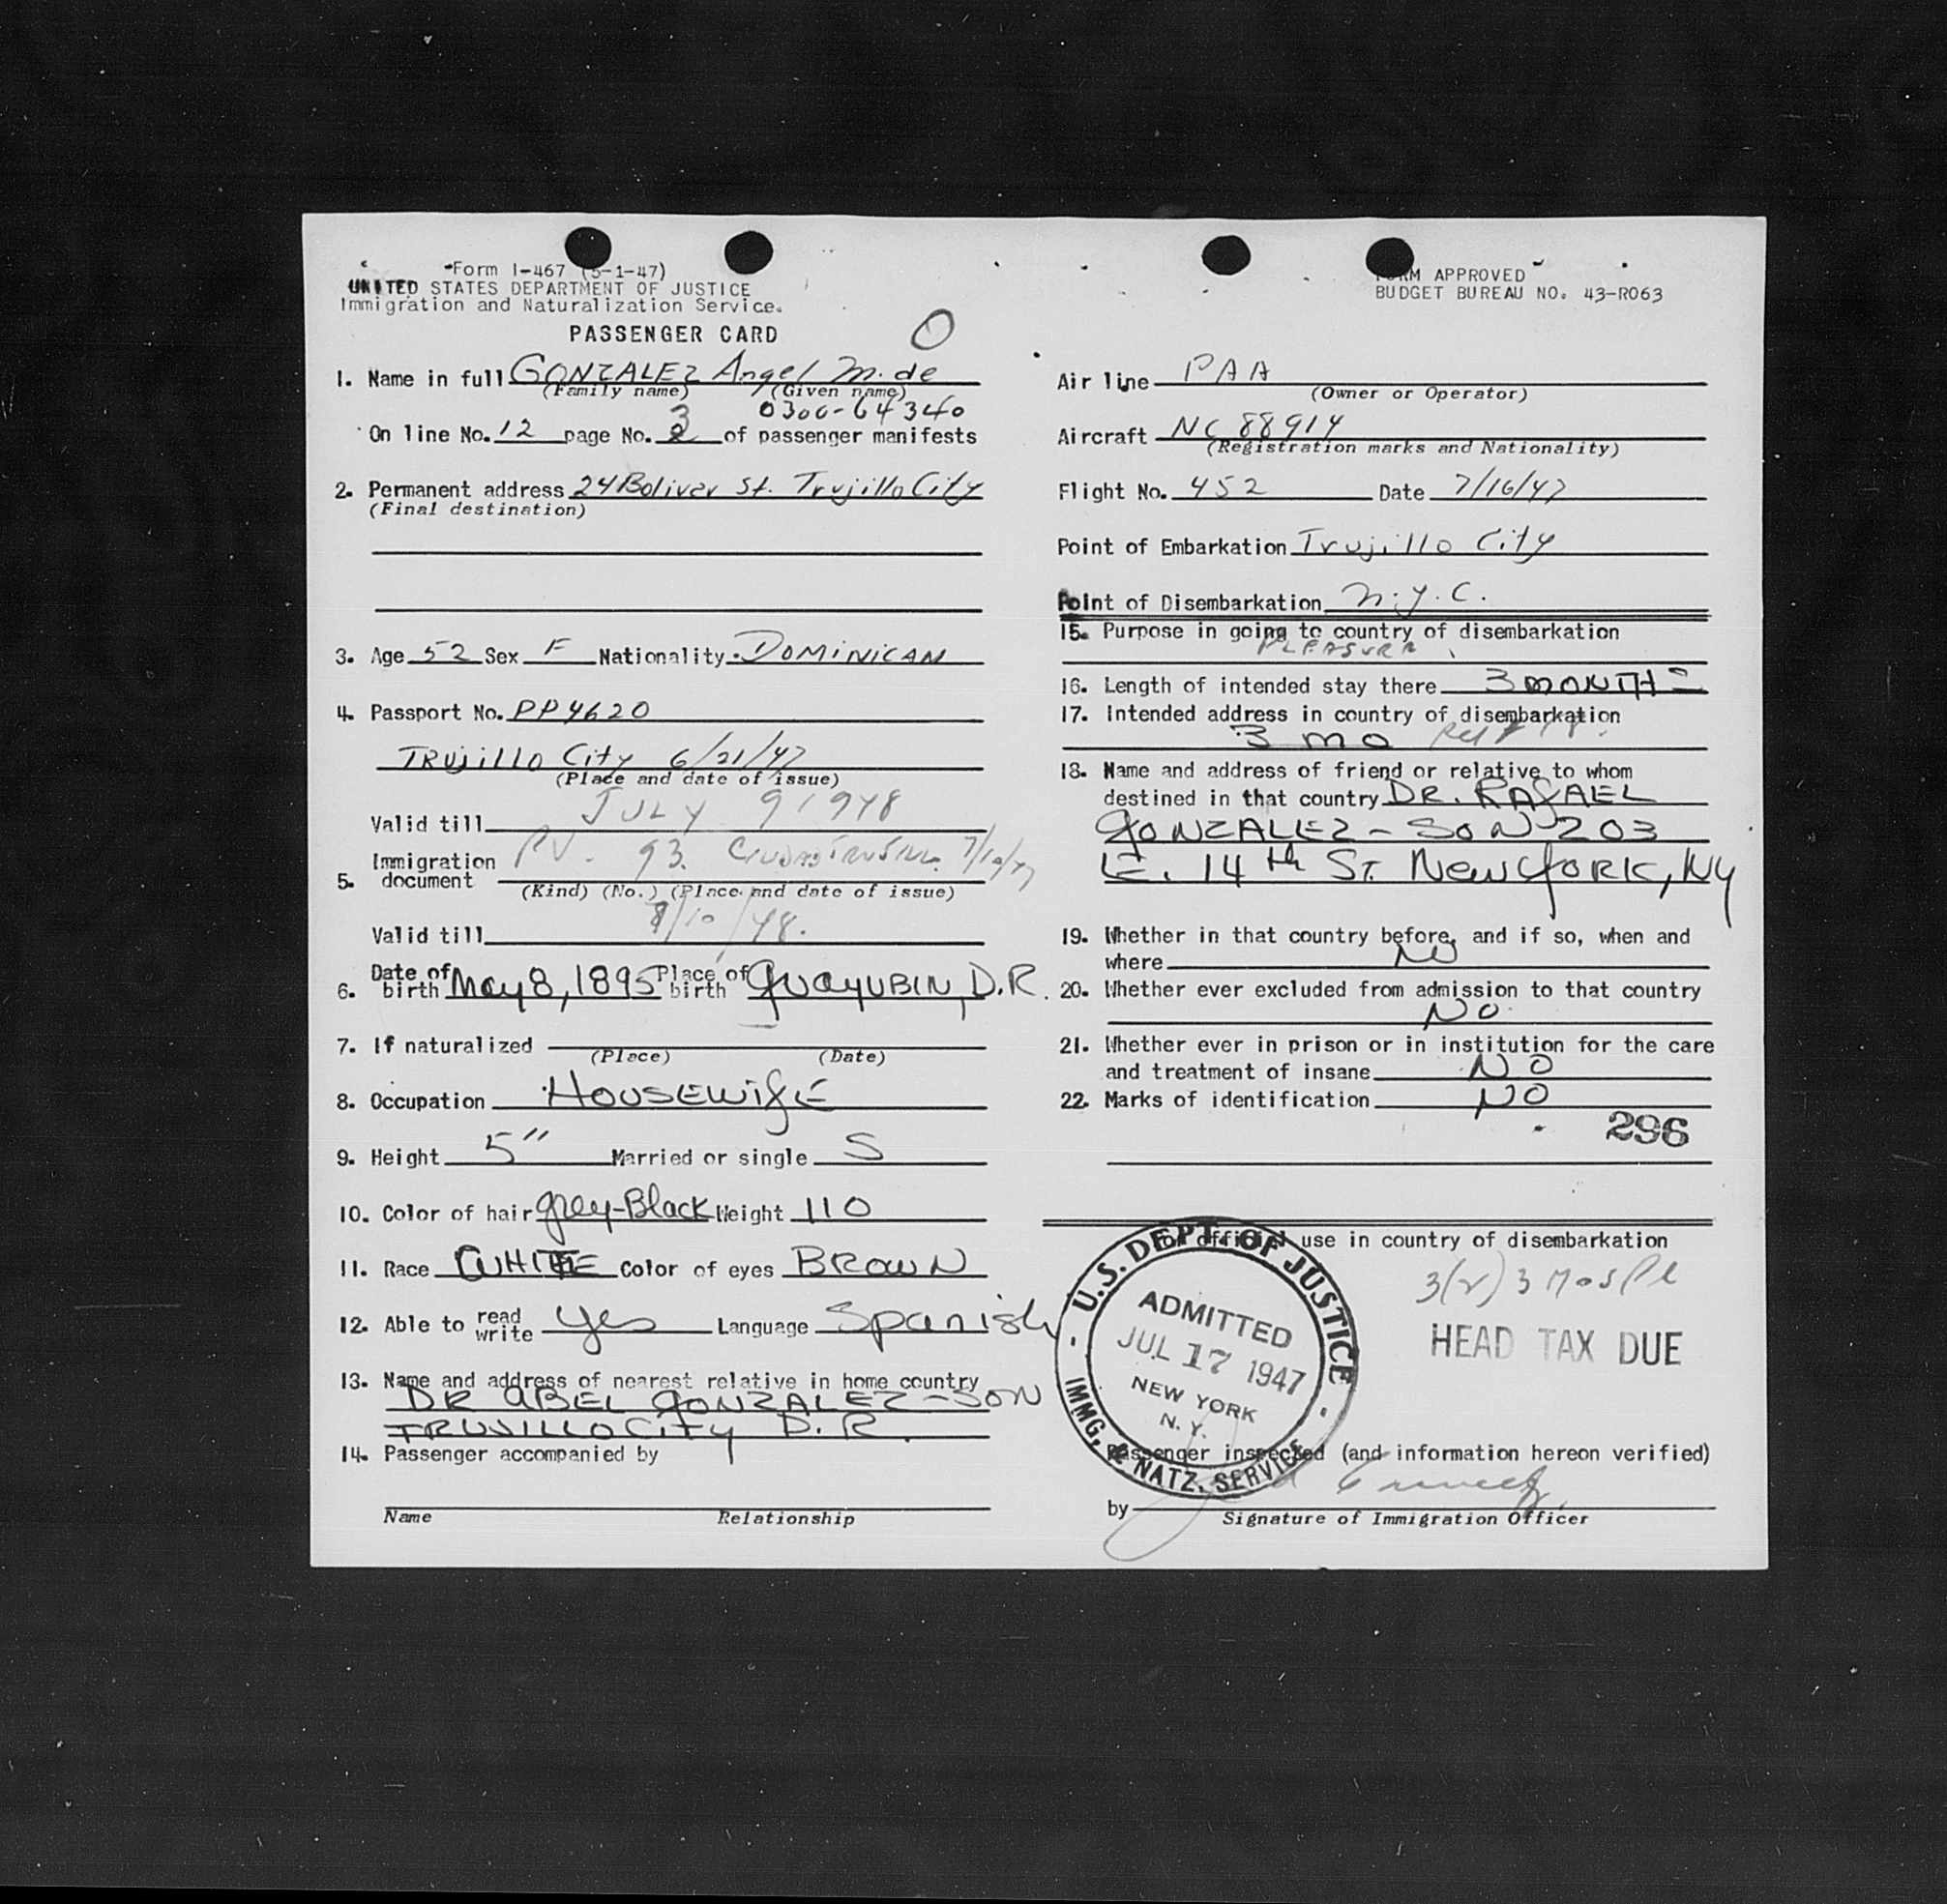 Form I-467 (5-1-47)
UNITED STATES DEPARTMENT OF JUSTICE
Immigration and Naturalization Service.
PASSENGER CARD
O
1. Name in full GONZALEZ Angel M. de
(Family name) (Given name)
0300-64340
On line No. 12 page No. 3 of passenger manifests
2. Permanent address 24 Boliver St. Trujillo City
(Final destination)
3. Age 52 Sex F Nationality DOMINICAN
4. Passport No. PP4620
TRUJILLO City 6/21/47
(Place and date of issue)
Valid till JULY 9 1948
5. Immigration document PV. 93. CIUDAD TRUJILLO 7/10/47
(Kind) (No.) (Place and date of issue)
Valid till /10/48.
6. Date of birth May 8, 1895 Place of birth GUAYUBIN, D.R.
7. If naturalized
(Place) (Date)
8. Occupation HOUSEWIFE
9. Height 5" Married or single S
10. Color of hair grey-Black Weight 110
11. Race WHITE Color of eyes BROWN
12. Able to read write yes Language Spanish
13. Name and address of nearest relative in home country
DR ABEL GONZALEZ-SON
TRUJILLO CITY D.R.
14. Passenger accompanied by
Name Relationship
FORM APPROVED
BUDGET BUREAU NO. 43-R063
Air line PAA
(Owner or Operator)
Aircraft NC 88914
(Registration marks and Nationality)
Flight No. 452 Date 7/16/47
Point of Embarkation Trujillo City
Point of Disembarkation N.Y.C.
15. Purpose in going to country of disembarkation
PLEASURE
16. Length of intended stay there 3 MONTHS
17. Intended address in country of disembarkation
3 mo
18. Name and address of friend or relative to whom
destined in that country DR. RAFAEL
GONZALEZ-SON 203
E. 14th ST. New YORK, NY
19. Whether in that country before, and if so, when and
where NO
20. Whether ever excluded from admission to that country
NO
21. Whether ever in prison or in institution for the care
and treatment of insane NO
22. Marks of identification NO
296
For official use in country of disembarkation
3(2) 3 Mos Pl
HEAD TAX DUE
U.S. DEPT. OF JUSTICE
ADMITTED
JUL 17 1947
NEW YORK
N. Y.
IMMG, & NATZ. SERVICE
Passenger inspected (and information hereon verified)
by
Signature of Immigration Officer